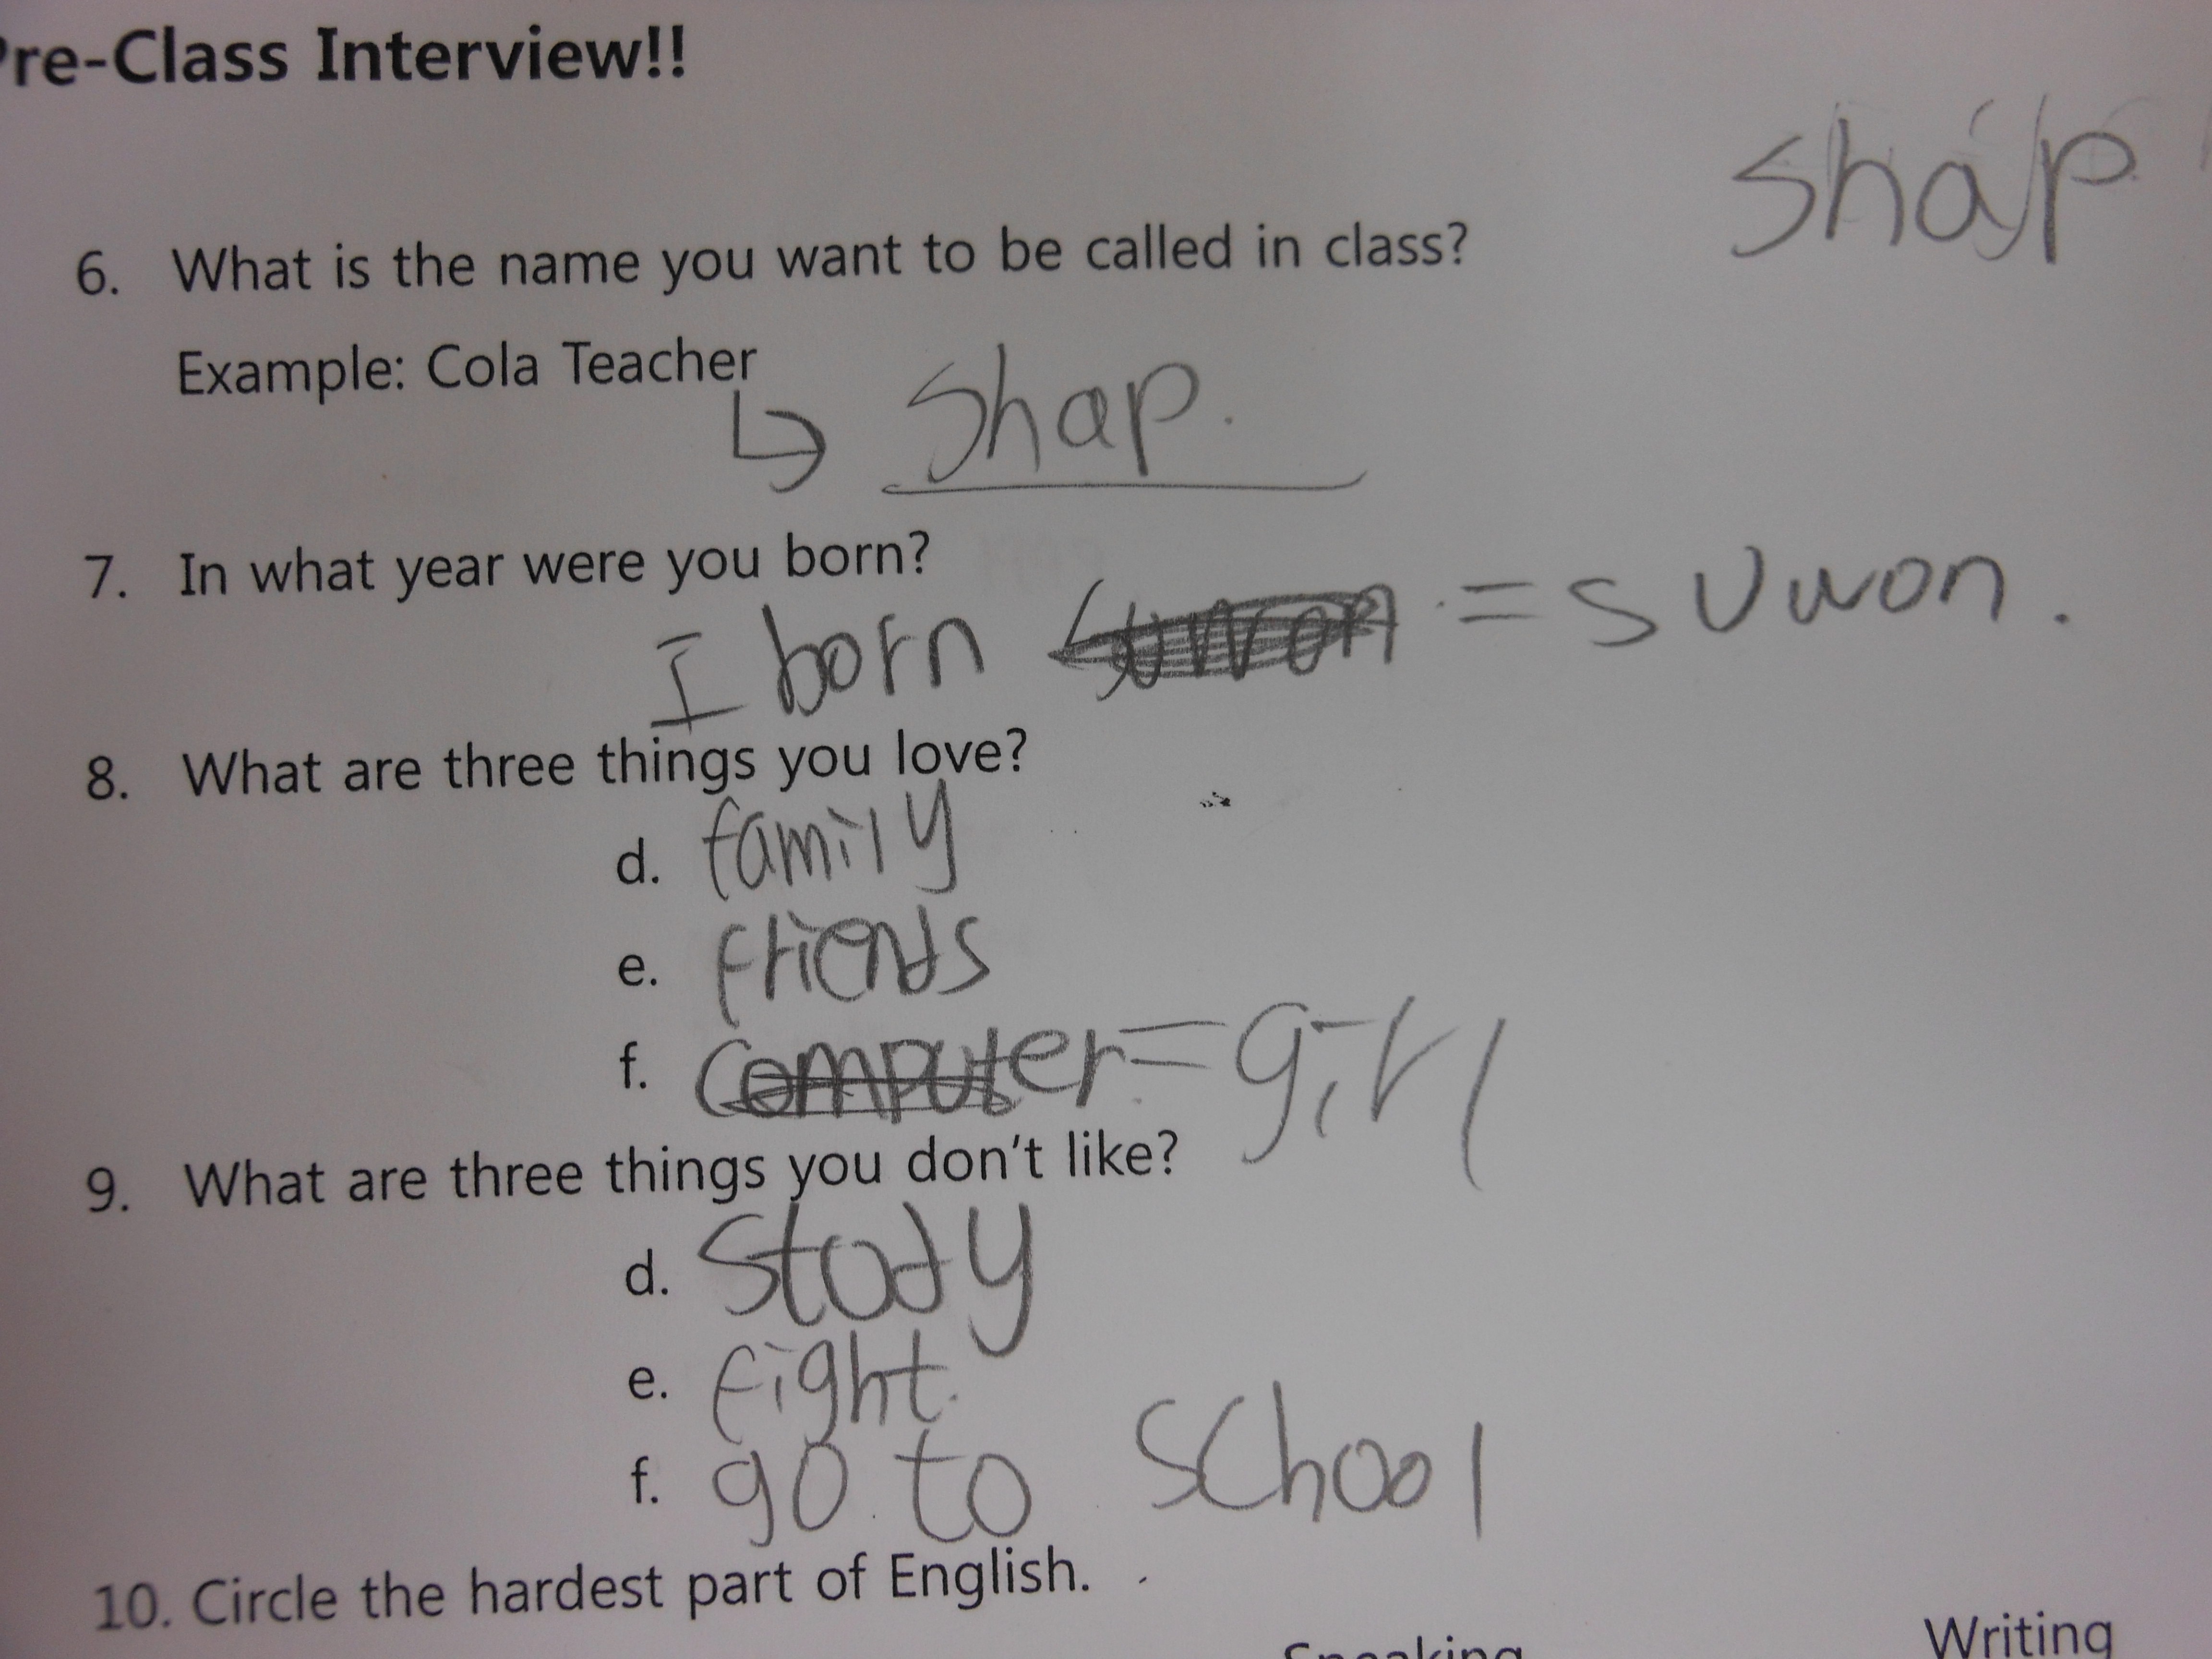 Pre-Class Interview!!
shap
6. What is the name you want to be called in class?
Example: Cola Teacher
↳ Shap.
7. In what year were you born?
I born Suwon = suwon.
8. What are three things you love?
d. family
e. friends
f. computer = girl
9. What are three things you don't like?
d. stody
e. fight.
f. go to school
10. Circle the hardest part of English.
Speaking Writing